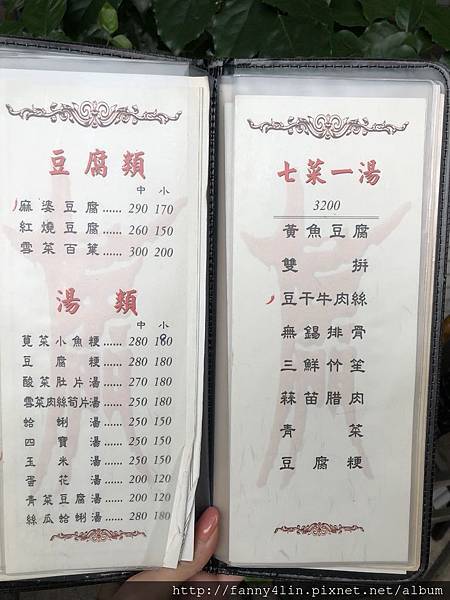 豆腐類
中 小
麻婆豆腐...... 290 170
紅燒豆腐...... 260 150
雪菜百葉...... 300 200
湯類
中 小
莧菜小魚粳...... 280 180
豆腐粳...... 280 180
酸菜肚片湯...... 270 180
雪菜肉絲筍片湯...... 250 180
蛤蜊湯...... 250 150
四寶湯...... 250 150
玉米湯...... 250 150
蛋花湯...... 200 120
青菜豆腐湯...... 200 120
絲瓜蛤蜊湯...... 280 180
七菜一湯
3200
黃魚豆腐
雙拼
豆干牛肉絲
無錫排骨
三鮮竹笙
蒜苗腊肉
青菜
豆腐粳
http://fanny4lin.pixnet.net/album